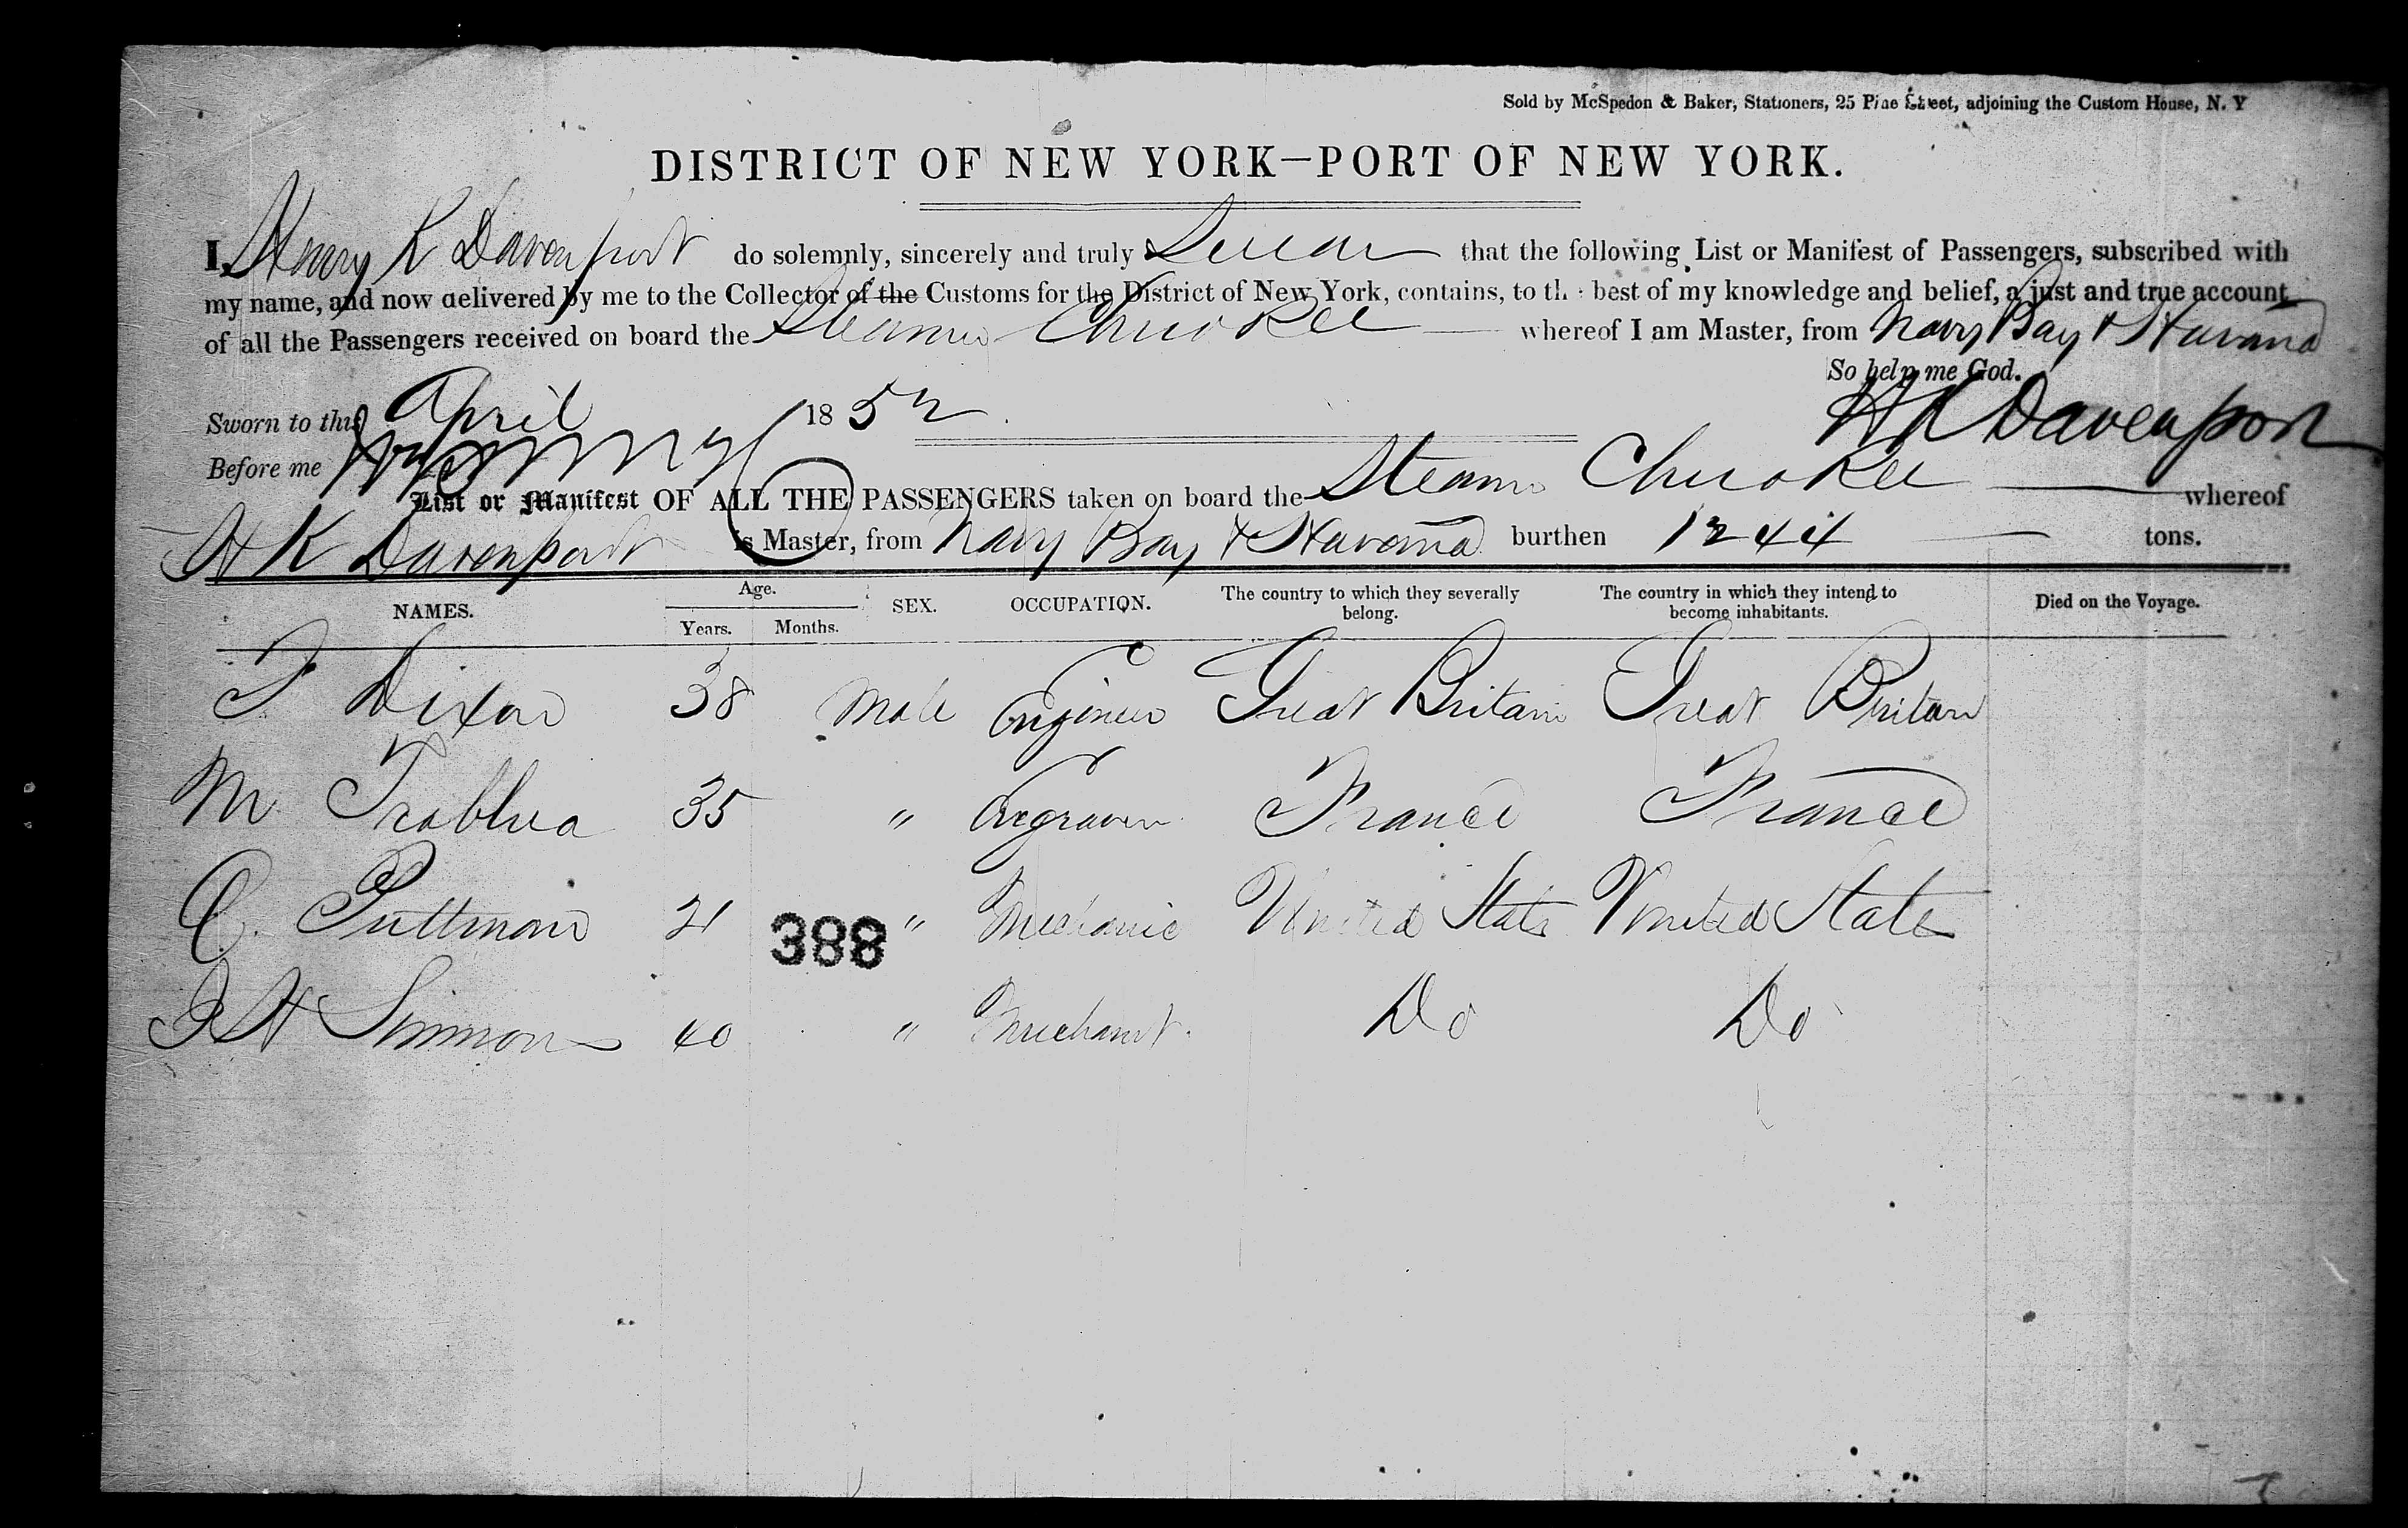 Sold by McSpedon & Baker, Stationers, 25 Pine Street, adjoining the Custom House, N. Y
DISTRICT OF NEW YORK—PORT OF NEW YORK.
I, Henry K Davenport do solemnly, sincerely and truly Swear that the following List or Manifest of Passengers, subscribed with
my name, and now delivered by me to the Collector of the Customs for the District of New York, contains, to the best of my knowledge and belief, a just and true account
of all the Passengers received on board the Steamer Cherokee whereof I am Master, from Navy Bay & Havana
So help me God.
Sworn to this April 1852. H K Davenport
Before me
List or Manifest OF ALL THE PASSENGERS taken on board the Steamer Cherokee whereof
H K Davenport is Master, from Navy Bay & Havana burthen 1244 tons.
NAMES. Age. Years. Months. SEX. OCCUPATION. The country to which they severally belong. The country in which they intend to become inhabitants. Died on the Voyage.
T Dixon 38 Male Engineer Great Britain Great Britain
M 35 " Engraver France France
C. Puttman 21 " Mechanic United States United States
388
J H Simmons 40 " Merchant. Do Do